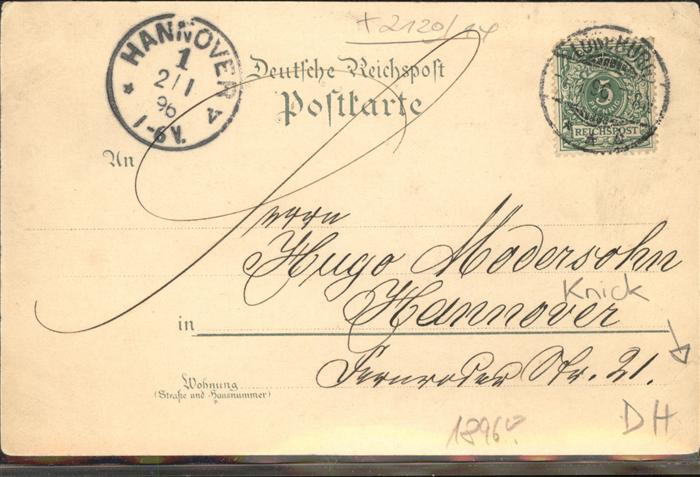 +2120/14
HANNOVER 4
1
2/1
96
V.
9-1
Deutsche Reichspost
Postkarte
LÜNEBURG
5
REICHSPOST
An
Herrn
Hugo Modersohn
Knick
in Hannover
Wohnung
(Straße und Hausnummer)
Str. 21.
1896
DH